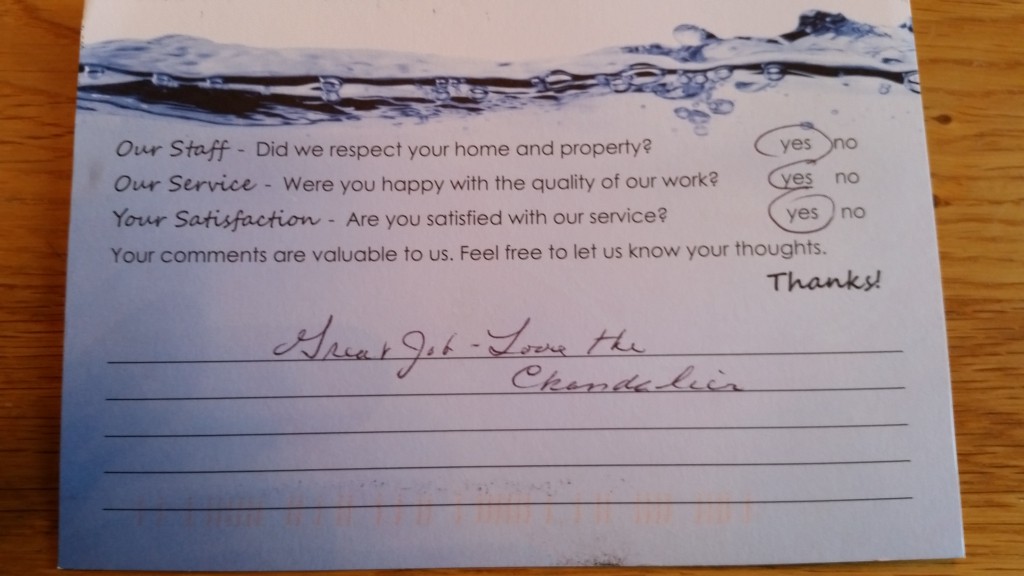 Our Staff - Did we respect your home and property? yes no
Our Service - Were you happy with the quality of our work? yes no
Your Satisfaction - Are you satisfied with our service? yes no
Your comments are valuable to us. Feel free to let us know your thoughts.
Thanks!
Great Job - Love the
Chandelier